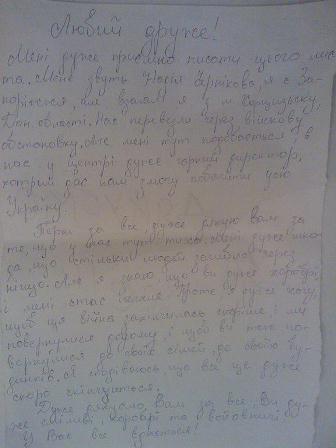 Любий друже!
Мені дуже приємно писати цього лис-
та. Мене звуть Настя Чернікова, я є За-
поріжжя, але взагалі я з м.
Дон. області. Нас перевели через військову
обстановку. Але мені тут подобається, в
нас у центрі дуже гарний директор,
котрий дає нам змогу побачити усю
Україну.
Перш за все, дуже дякую вам за
те, що у нас тут тихо. Мені дуже шко-
да, що стільки людей загинуло через
ніщо. Але я знаю, що ви дуже хоробрі,
і мені стає легше. Проте я дуже хочу,
щоб ця війна закінчилась скоріше і ми
повернулися додому, і щоб ви теж по-
вернулися до своїх сімей, до своїх бу-
динків. Я сподіваюсь, що все це дуже
скоро скінчиться.
Дуже дякую Вам за все. Ви ду-
же сміливі, хоробрі та войовничі.
У Вас все вдасться!